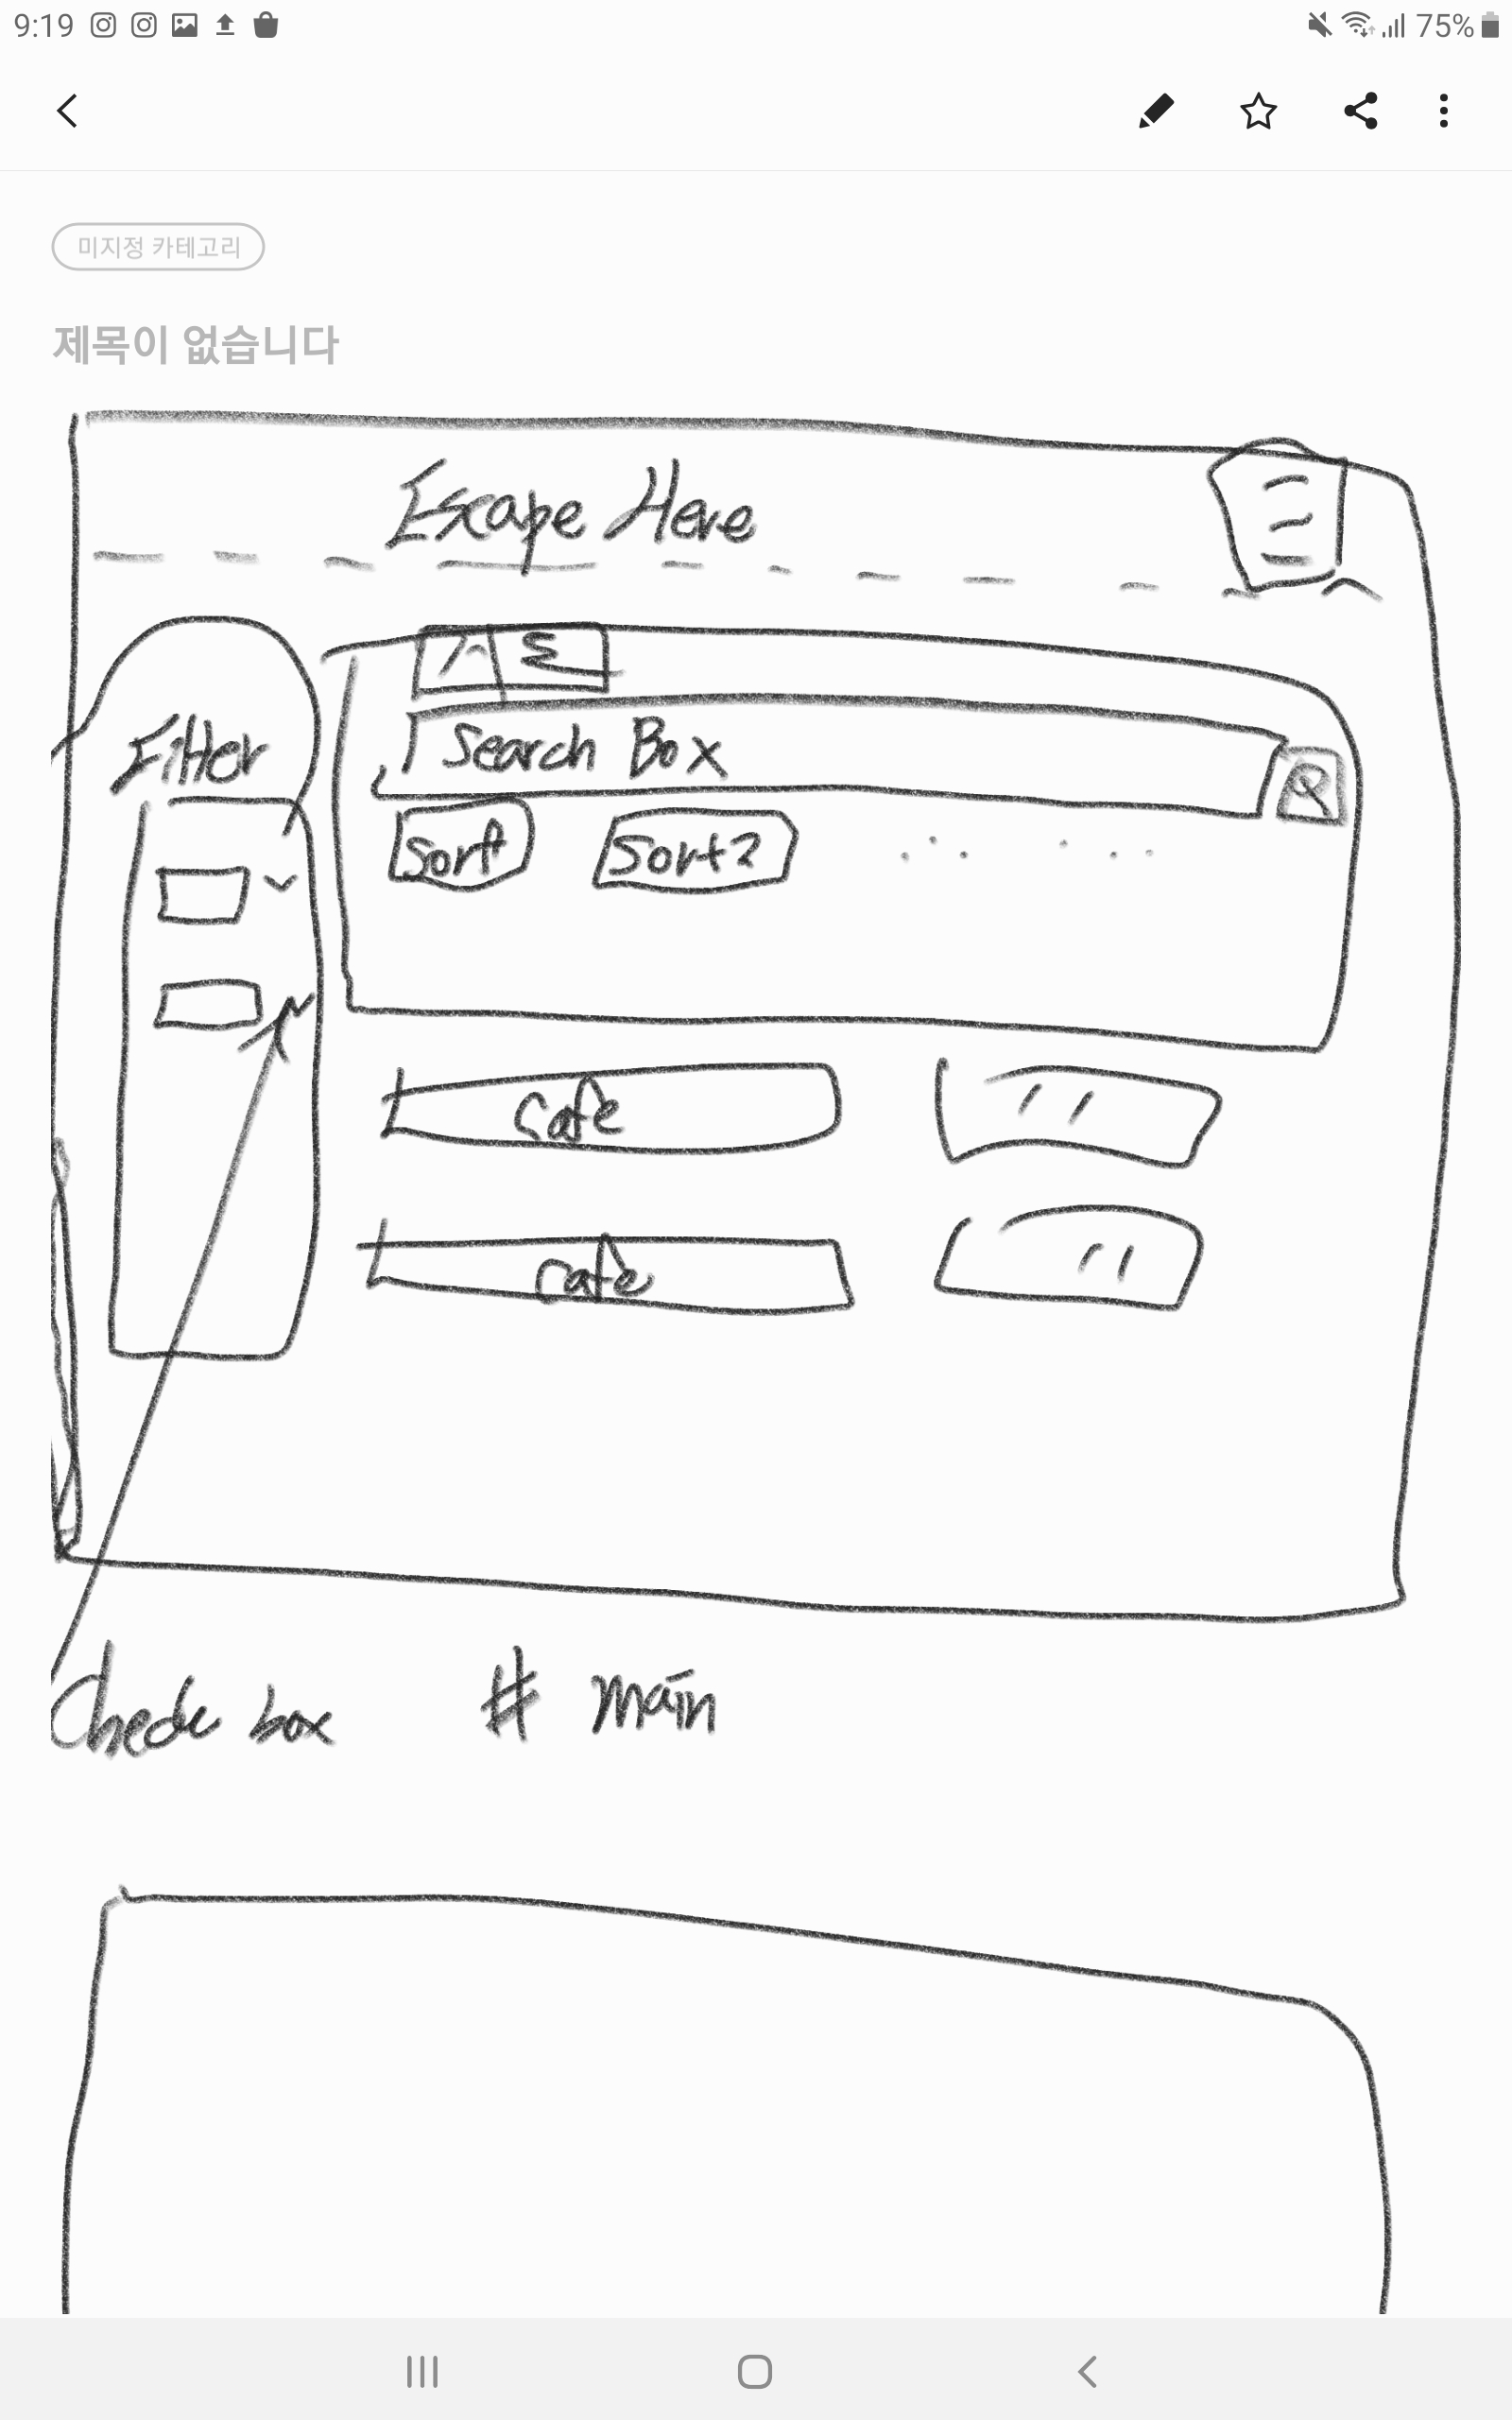 9:19 75%
미지정 카테고리
제목이 없습니다
Escape Here
Filter
Search Box
Sort Sort2
Cafe "
Cafe "
Check box # main